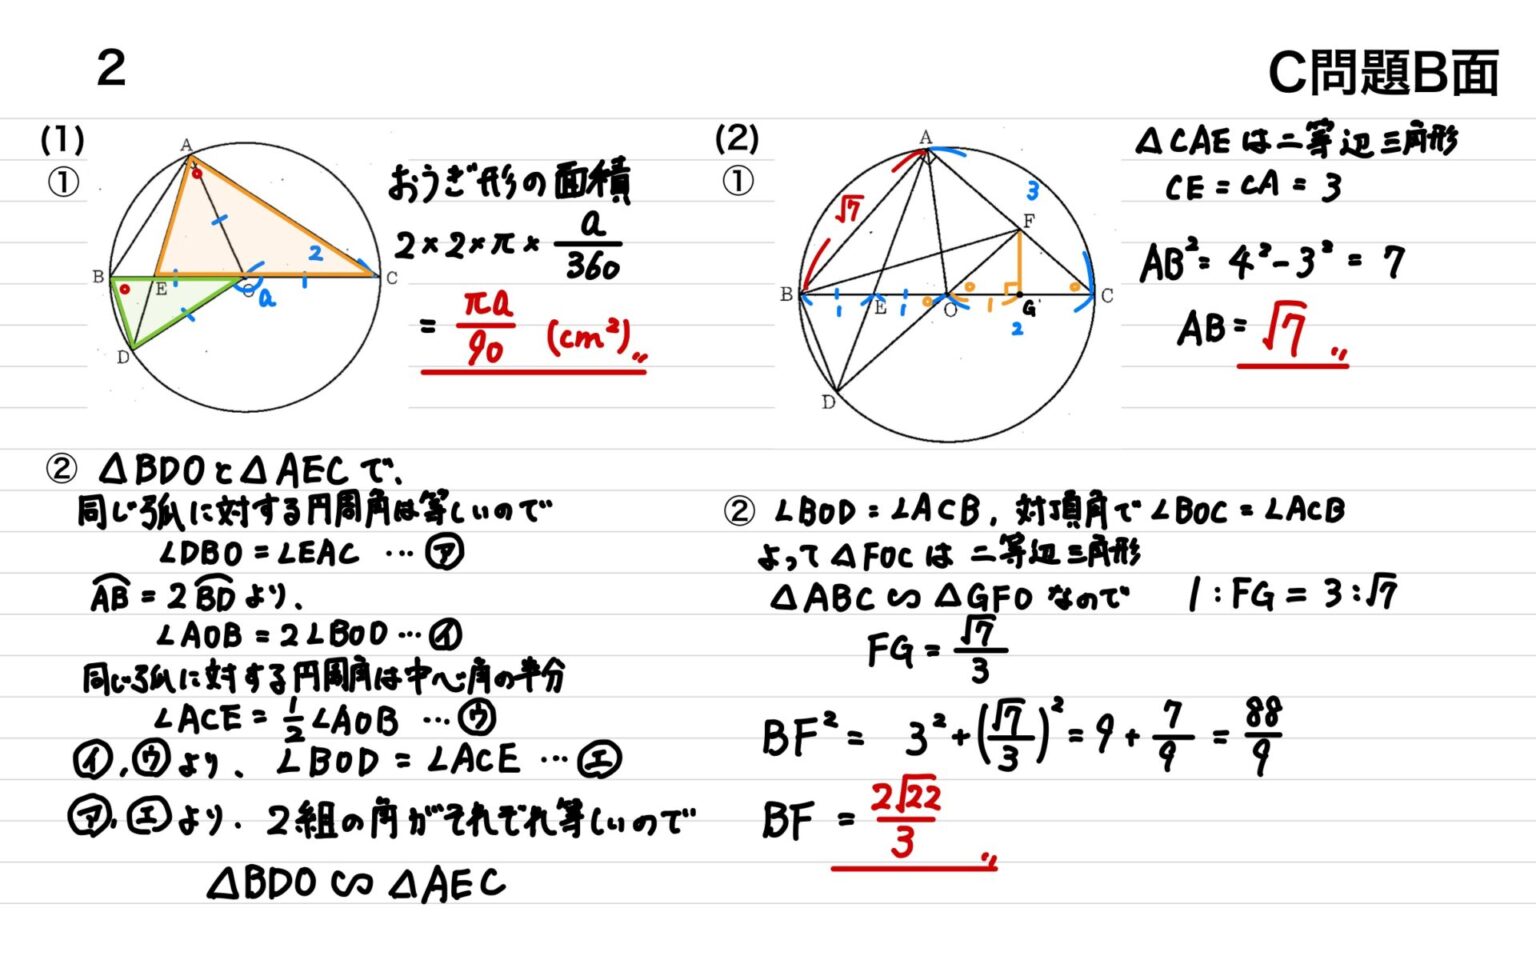 2
C問題B面
(1)
①
A
B
E
O
C
D
2
a
おうぎ形の面積
2×2×π× a/360
= πa/90 (cm²)〃
② △BDOと△AECで、
同じ弧に対する円周角は等しいので
∠DBO = ∠EAC … ㋐
⌒AB = 2⌒BDより、
∠AOB = 2∠BOD … ㋑
同じ弧に対する円周角は中心角の半分
∠ACE = 1/2 ∠AOB … ㋒
㋑,㋒より、∠BOD = ∠ACE … ㋓
㋐,㋓より、2組の角がそれぞれ等しいので
△BDO ∽ △AEC
(2)
①
A
3
√7
F
B
E
O
G
C
1
1
1
2
D
△CAEは二等辺三角形
CE = CA = 3
AB² = 4² - 3² = 7
AB = √7〃
② ∠BOD = ∠ACB, 対頂角で∠BOC = ∠ACB
よって△FOCは二等辺三角形
△ABC ∽ △GFOなので 1 : FG = 3 : √7
FG = √7/3
BF² = 3² + (√7/3)² = 9 + 7/9 = 88/9
BF = 2√22/3〃